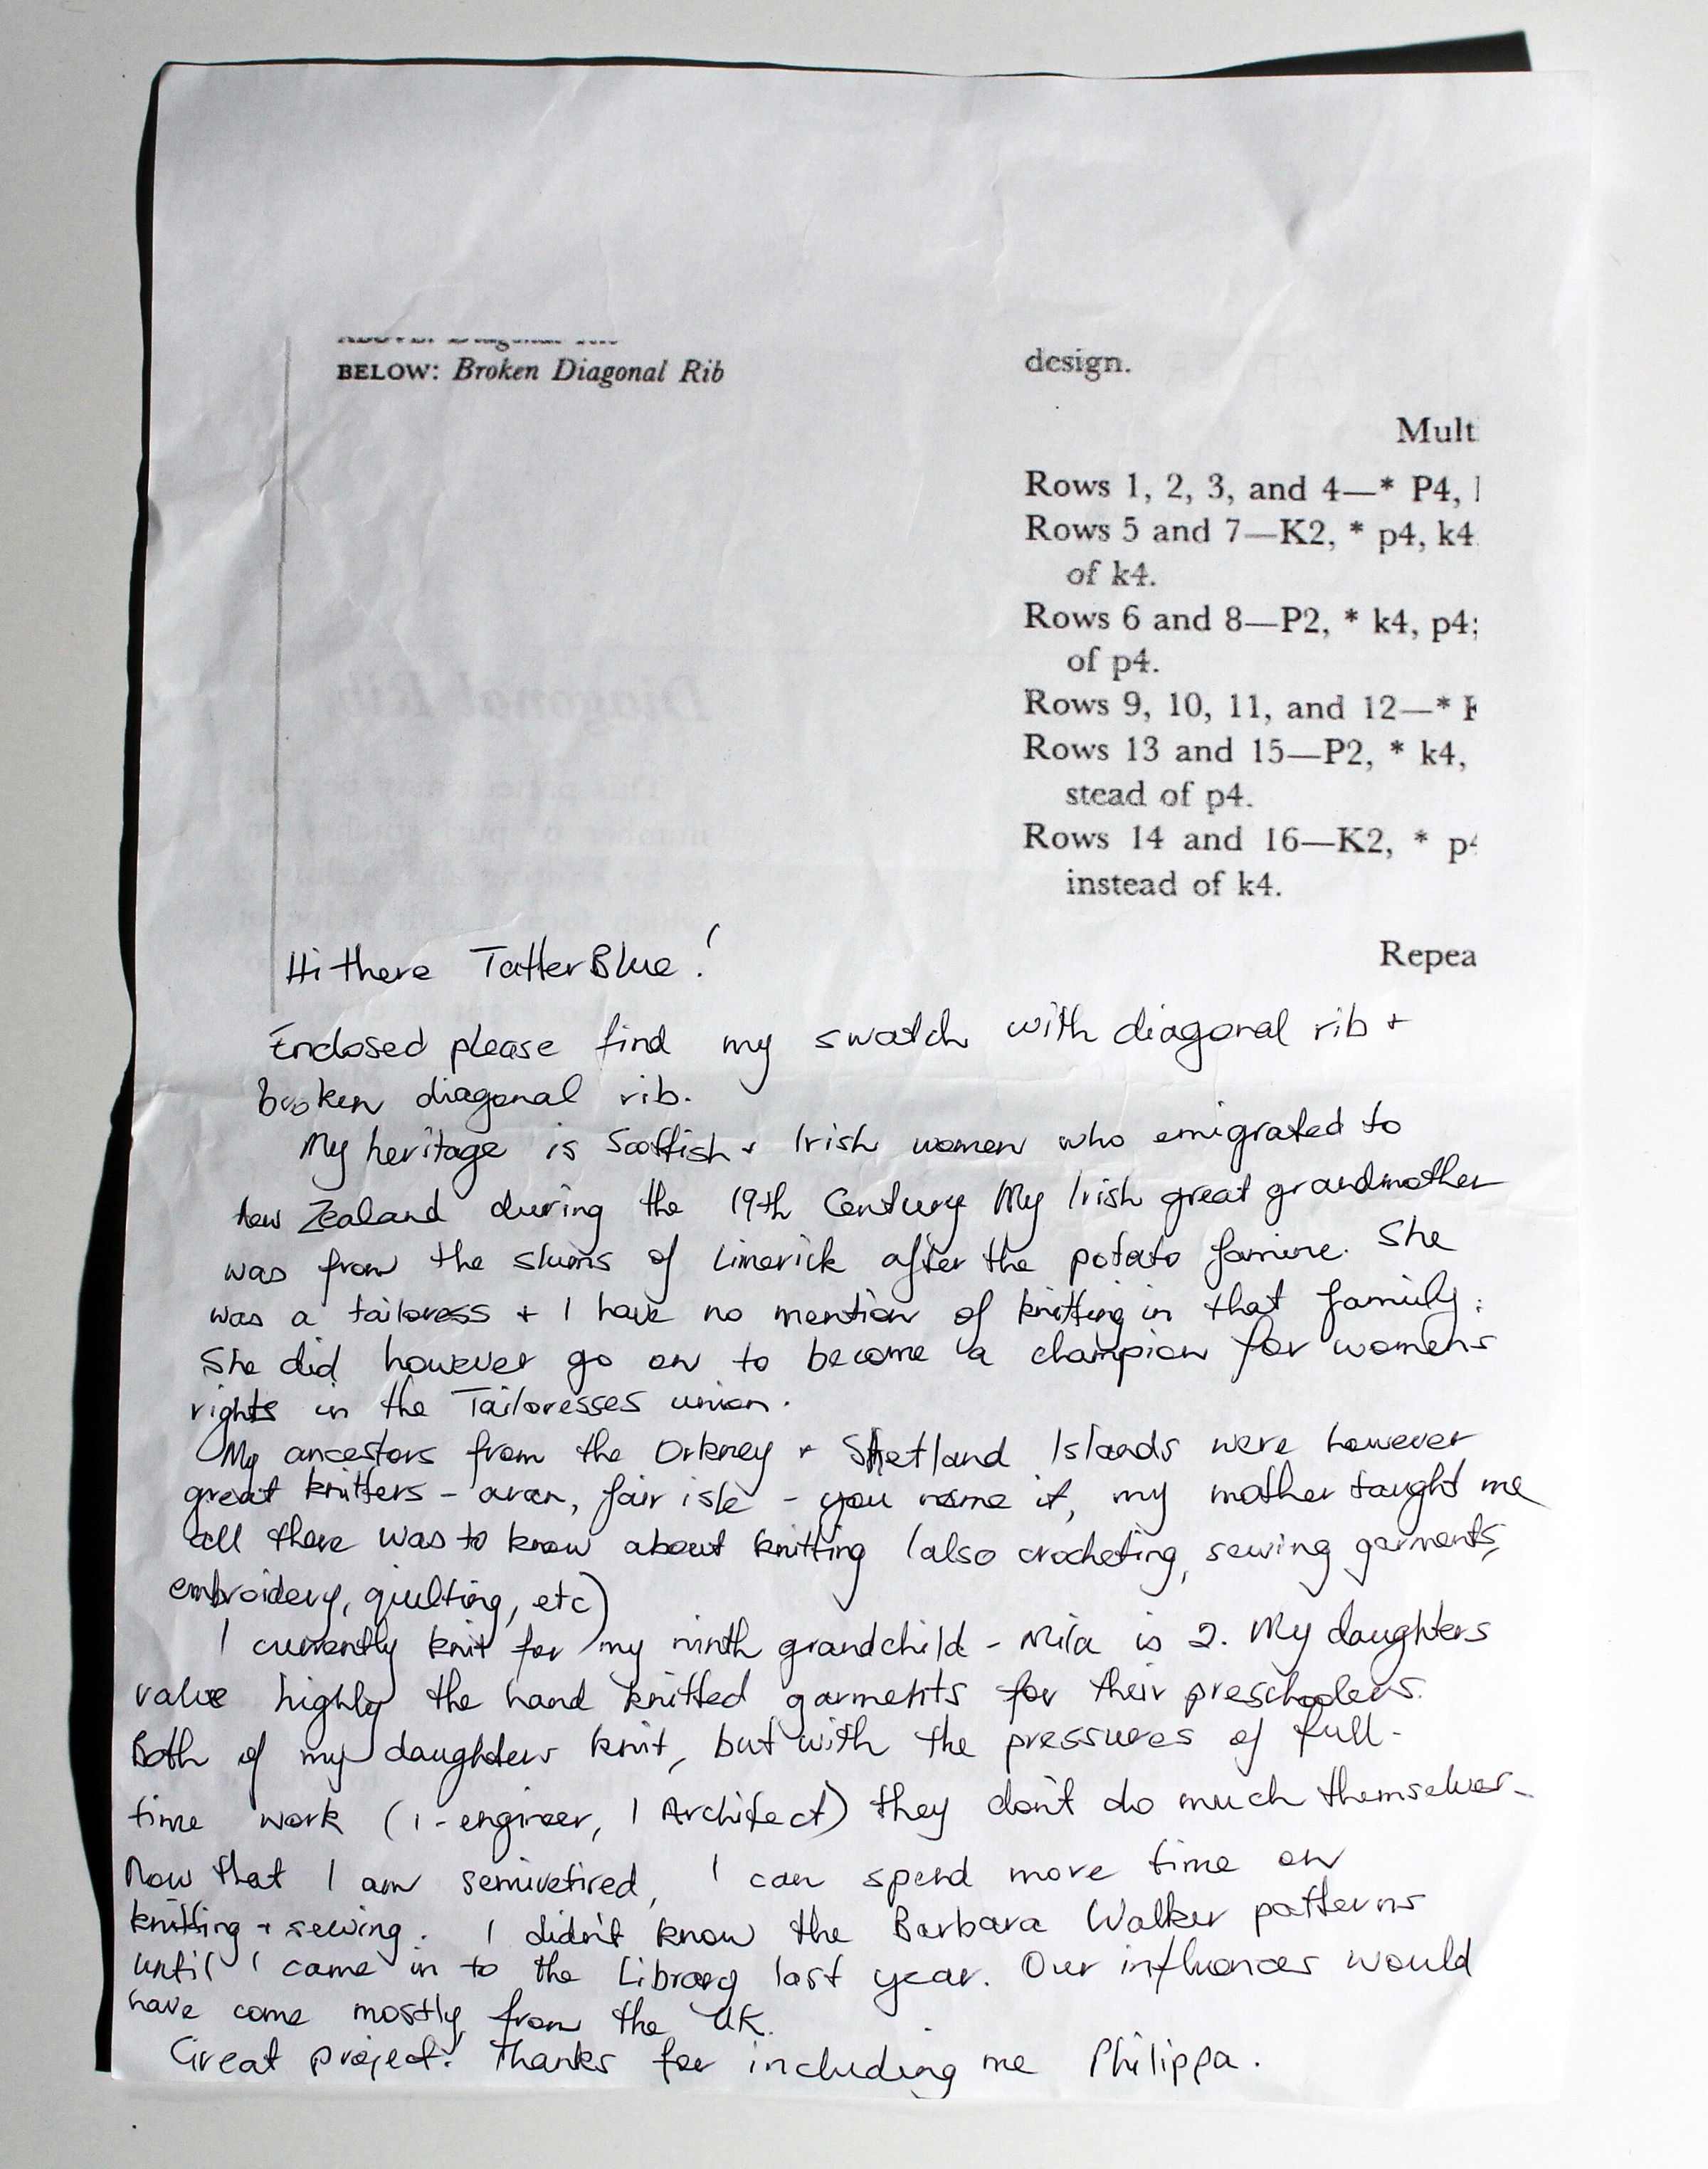 BELOW: Broken Diagonal Rib
design.
Mult
Rows 1, 2, 3, and 4—* P4,
Rows 5 and 7—K2, * p4, k4
of k4.
Rows 6 and 8—P2, * k4, p4;
of p4.
Rows 9, 10, 11, and 12—*
Rows 13 and 15—P2, * k4,
stead of p4.
Rows 14 and 16—K2, * p4
instead of k4.
Repea
Hi there TatterBlue!
Enclosed please find my swatch with diagonal rib +
broken diagonal rib.
My heritage is Scottish + Irish women who emigrated to
New Zealand during the 19th Century My Irish great grandmother
was from the slums of Limerick after the potato famine. She
was a tailoress + I have no mention of knitting in that family;
She did however go on to become a champion for womens
rights in the Tailoresses union.
My ancestors from the Orkney + Shetland Islands were however
great knitters - aran, fair isle - you name it, my mother taught me
all there was to know about knitting (also crocheting, sewing garments,
embroidery, quilting, etc)
I currently knit for my ninth grandchild - Mila is 2. My daughters
value highly the hand knitted garments for their preschoolers.
Both of my daughters knit, but with the pressures of full-
time work (1-engineer, 1 Architect) they don't do much themselves.
Now that I am semiretired, I can spend more time on
knitting + sewing. I didn't know the Barbara Walker patterns
until I came in to the Library last year. Our influences would
have come mostly from the UK.
Great project. Thanks for including me Philippa.